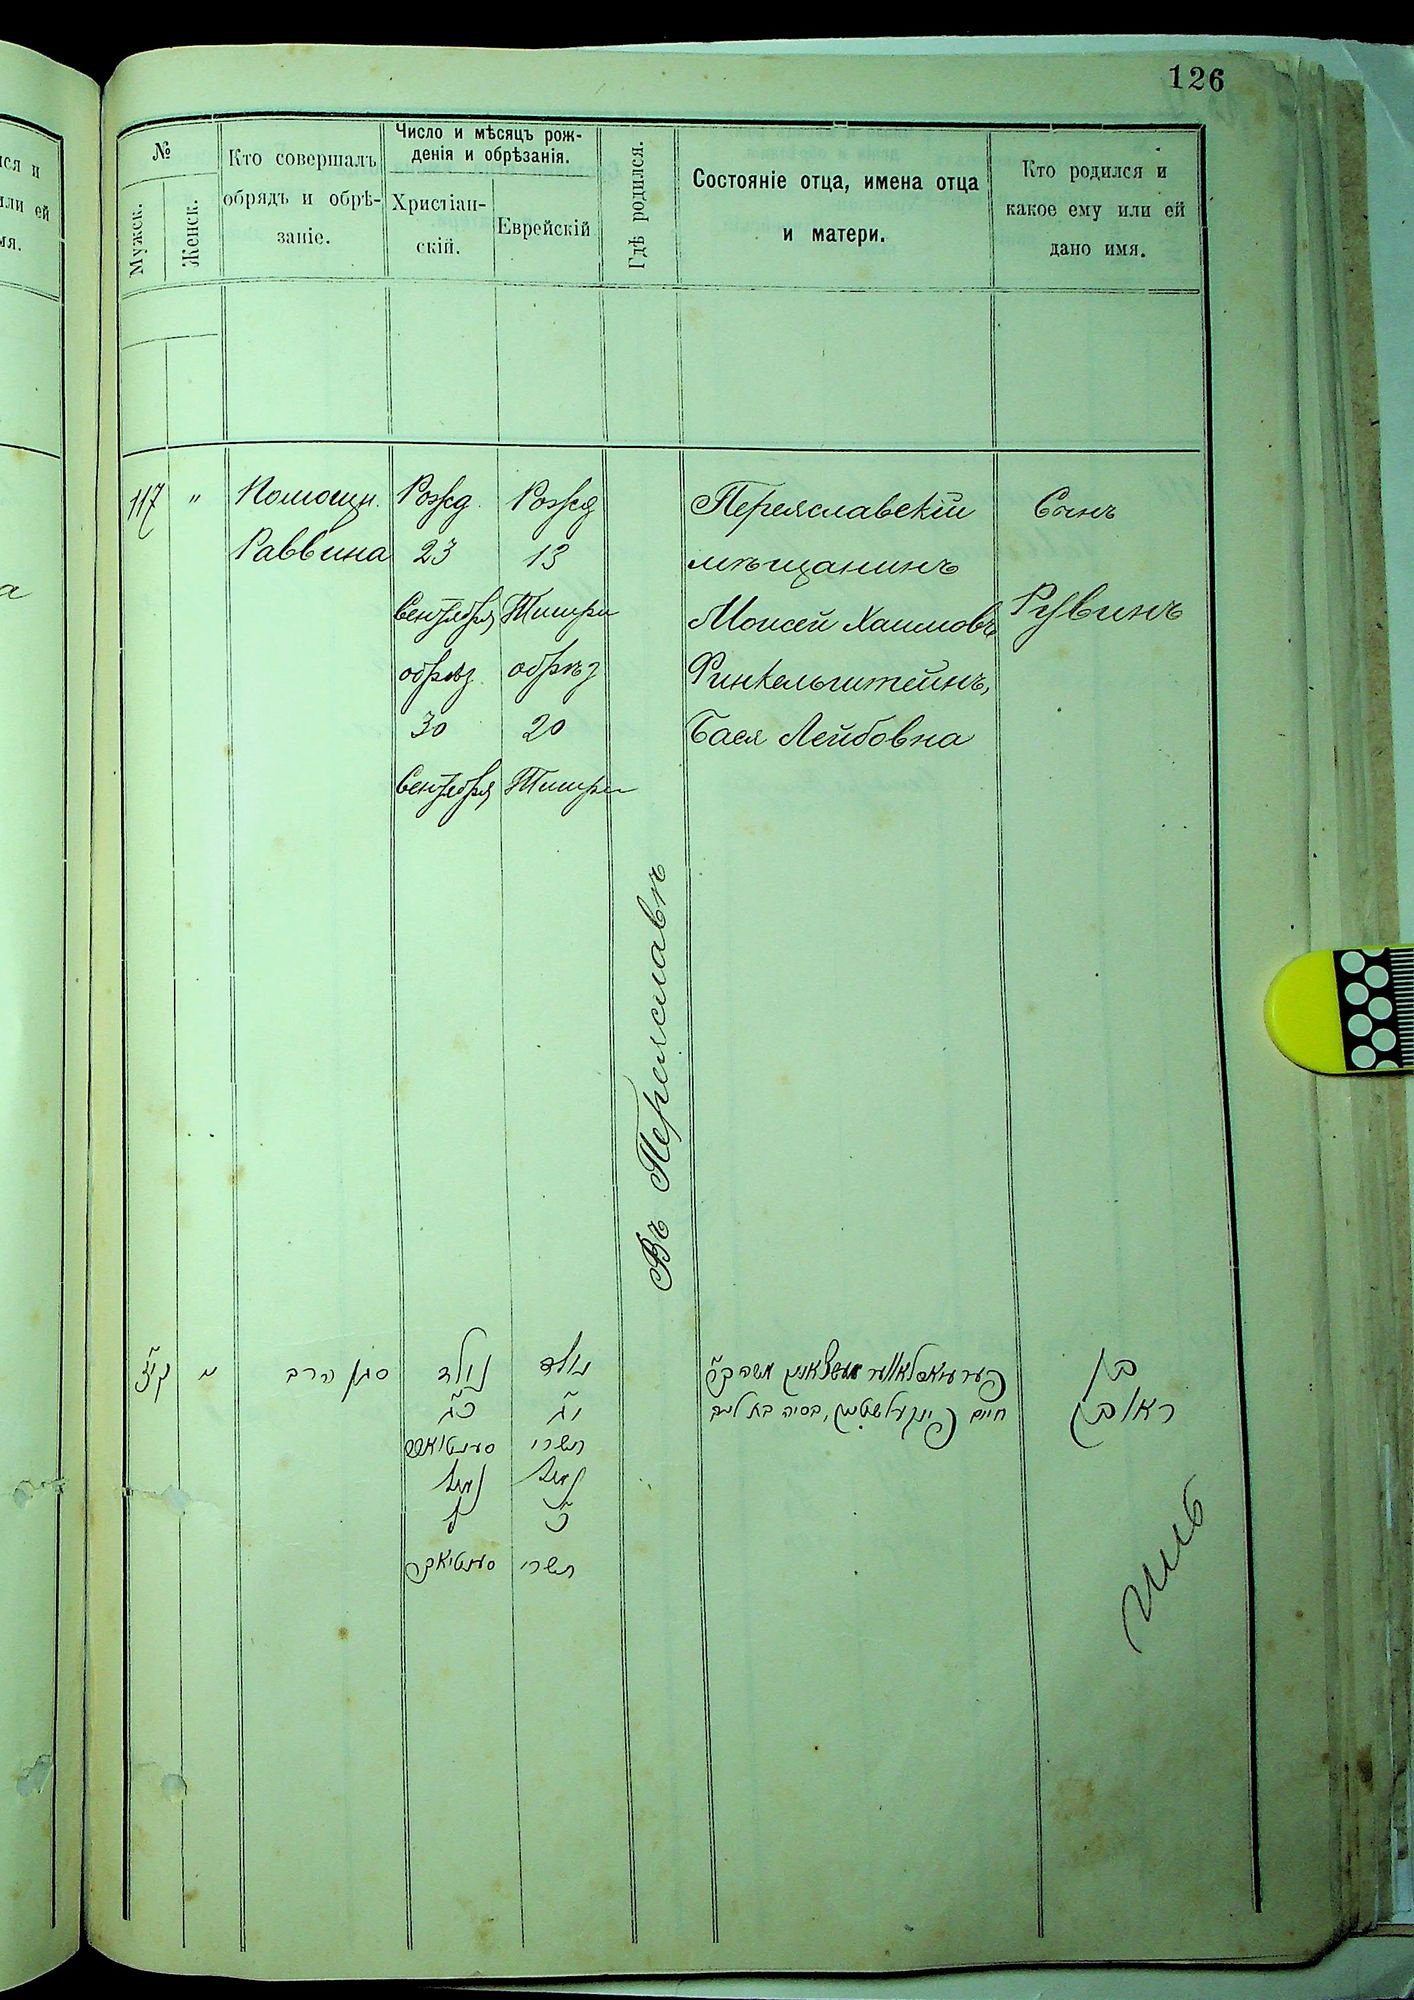 126
№
Мужск.
Женск.
Кто совершалъ
обрядъ и обрѣ-
заніе.
Число и мѣсяцъ рож-
денія и обрѣзанія.
Христіан-
скій.
Еврейскій
Гдѣ родился.
Состояніе отца, имена отца
и матери.
Кто родился и
какое ему или ей
дано имя.
117
"
Помощн.
Раввина
Рожд.
23
Сентября
обрѣз.
30
Сентября
Рожд
13
Тишри
обрѣз
20
Тишри
Въ Переяславѣ
Переяславскій
мѣщанинъ
Моисей Хаимовъ
Финкельштейнъ,
Бася Лейбовна
Сынъ
Рувинъ
סגן הרב
נולד
כ״ג
נימול
ל׳
נולד
י״ג
תשרי
נימול
כ׳
תשרי
משה
חיים פינקעלשטיין, בסיה בת ליב
בן
ראובן